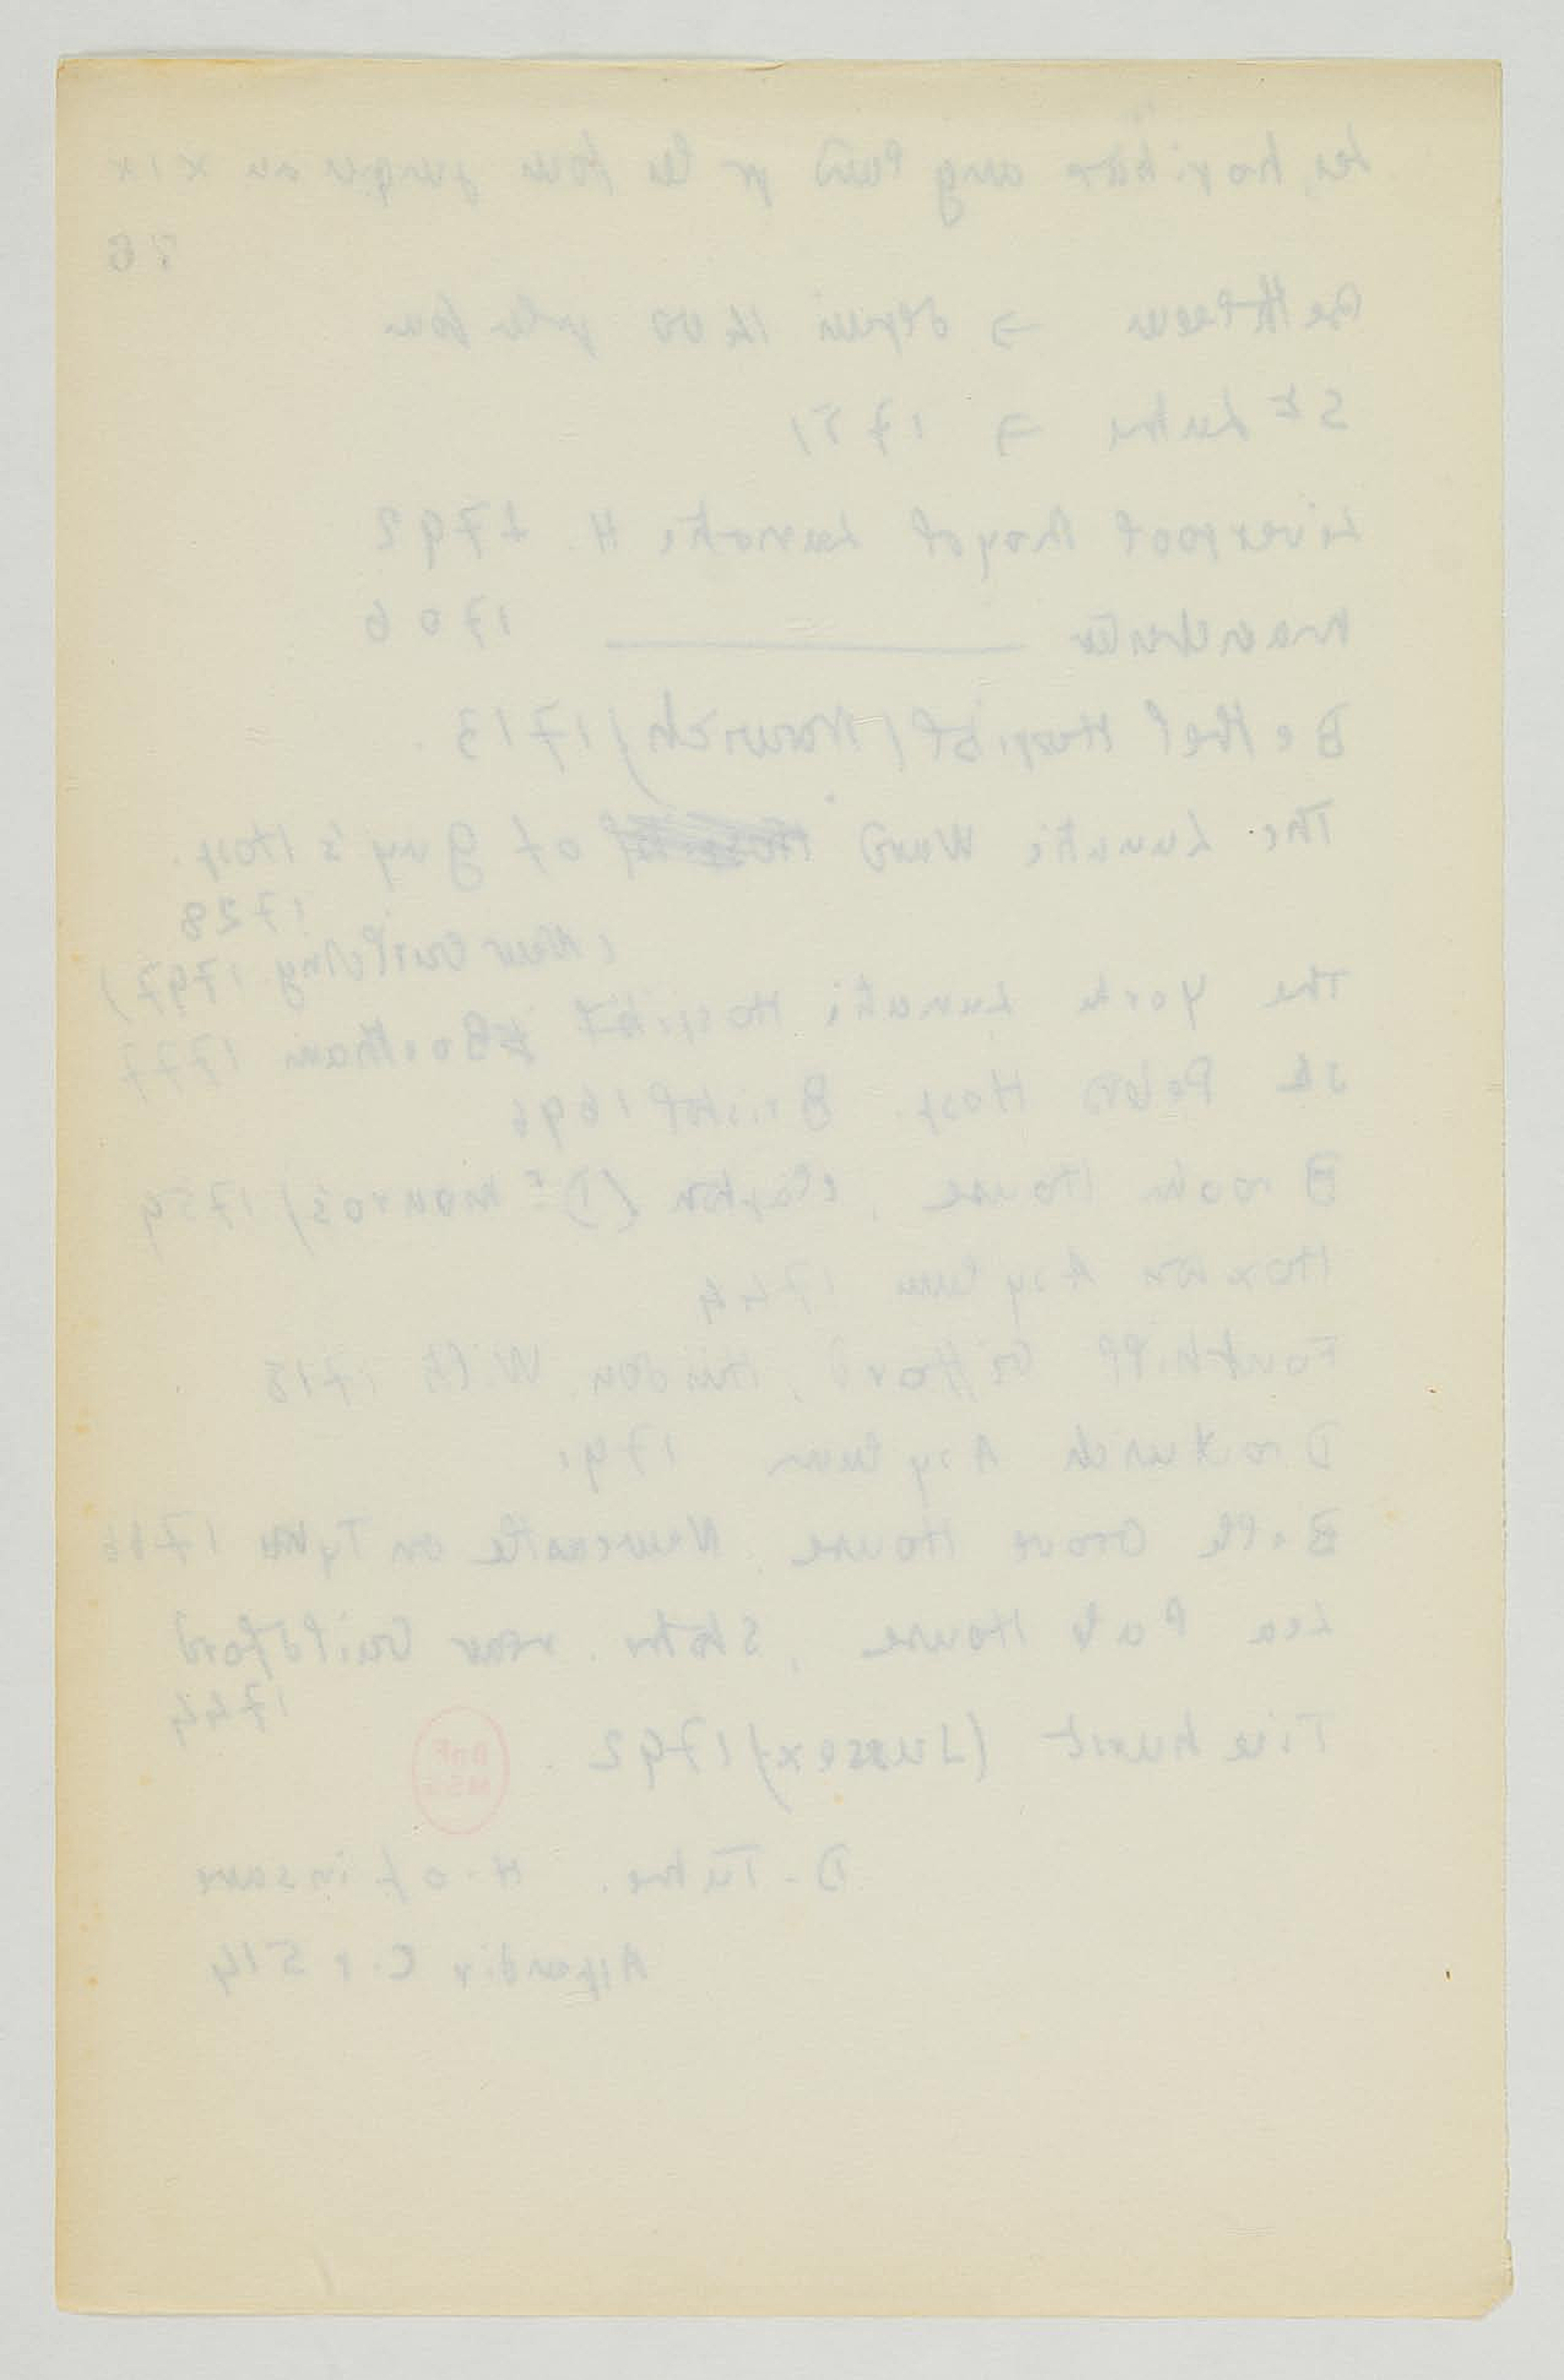 Les hopitaux anglais pr les fous jusqu'au XIX
76
Bethleem → depuis 1400 pr les fous
St Luke → 1751
Liverpool Royal Lunatic H. 1792
Manchester ——— 1706
Bethel Hospital (Norwich) 1713.
The Lunatic Ward of Guy's Hosp.
1728
(New building 1797)
The York Lunatic Hospital Bootham 1777
St Peters Hosp. Bristol 1696
Brook House, Clapton (Dr Monro's) 1759
Hoxton Asylum 1744
Fonthill Gifford, Hindon, Wilts 1718
Droitwich Asylum 1791
Belle Grove House, Newcastle on Tyne 1766
Lea Pale House, Stoke, near Guildford
1744
Ticehurst (Sussex) 1792.
BnF
MSS
D. Tuke. H. of insane
Appendix C. p 514